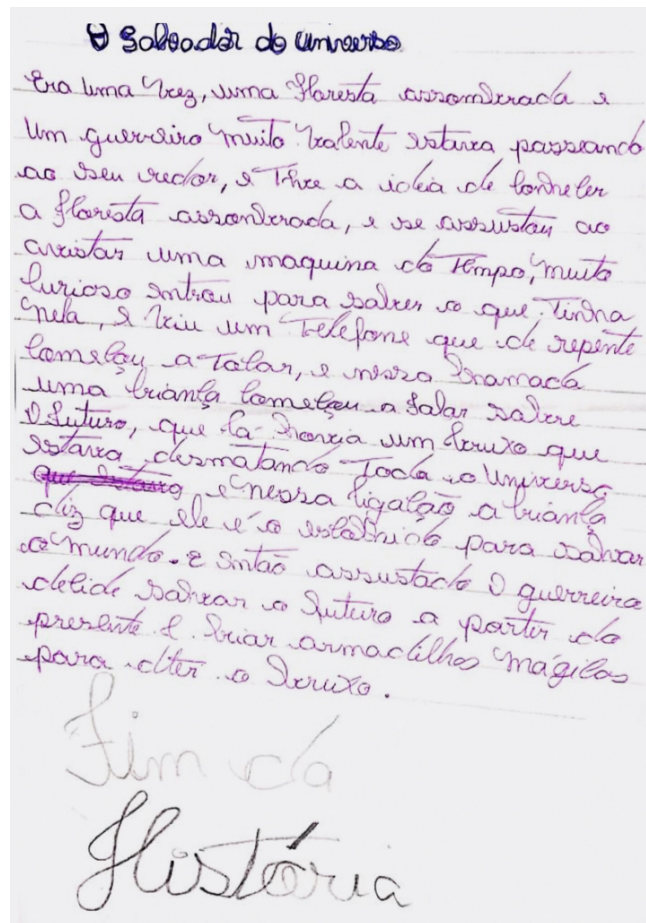 O Salvador do universo
Era uma vez, uma floresta assombrada e
um guerreiro muito valente estava passeando
ao seu redor, e teve a ideia de conhecer
a floresta assombrada, e se assustou ao
avistar uma maquina do tempo, muito
curioso entrou para saber o que tinha
nela, e viu um telefone que de repente
começou a tocar, e nessa chamada
uma criança começou a falar sobre
o futuro, que lá havia um bruxo que
estava desmatando todo o universo
e nessa ligação a criança
diz que ele é o escolhido para salvar
o mundo. e então assustado o guerreiro
decide salvar o futuro a partir do
presente e criar armadilhas mágicas
para deter o bruxo.
Fim da
História